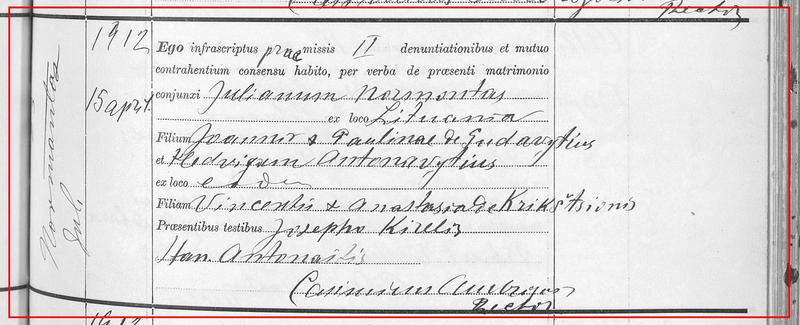 Rector
1912
15 april.
Normantas
Jul.
Ego infrascriptus præmissis II denuntiationibus et mutuo
contrahentium consensu habito, per verba de præsenti matrimonio
conjunxi Julianum Normontas
ex loco Lituania
Filium Joannis & Paulinae de Gudavytius
et Hedvigam Antonavytius
ex loco eodem
Filiam Vincentii & Anastasia de Krikštsionis
Præsentibus testibus Josepho Kirelis
Han. Antonaitis
Casimirus Ambrozas
Rector